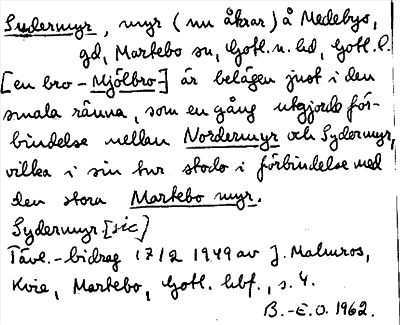 Sudermyr, myr (nu åkrar) å Medebys,
gd, Martebo sn, Gotl. n. hd, Gotl. l.
[en bro - Mjölbro -] är belägen just i den
smala ränna, som en gång utgjorde för-
bindelse mellan Nordermyr och Sydermyr,
vilka i sin tur stodo i förbindelse med
den stora Martebo myr.
Sydermyr [sic]
Tävl.-bidrag 17/2 1949 av J. Malmros,
Kvie, Martebo, Gotl. hbf., s. 4.
B.-E.O. 1962.